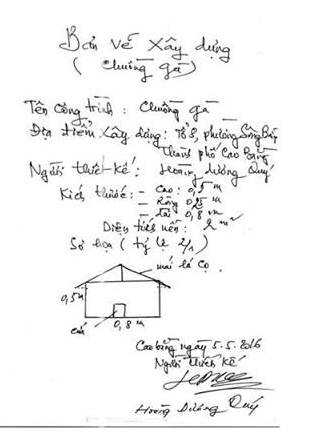 Bản vẽ xây dựng
( chuồng gà )
Tên công trình : Chuồng gà
Địa điểm xây dựng: Tổ 8, phường Sông Bằng
Thành phố Cao Bằng
Người thiết kế : Hoàng dương Quý
Kích thước : - Cao : 0,5 m
- Rộng 0,5 m
- dài 0,8 m
Diện tích nền : m²
Sơ họa ( tỷ lệ 2/1 )
mái lá cọ
0,5m
cửa
0,8 m
Cao bằng ngày 5.5.2016
Người thiết kế
Hoàng Dương Quý